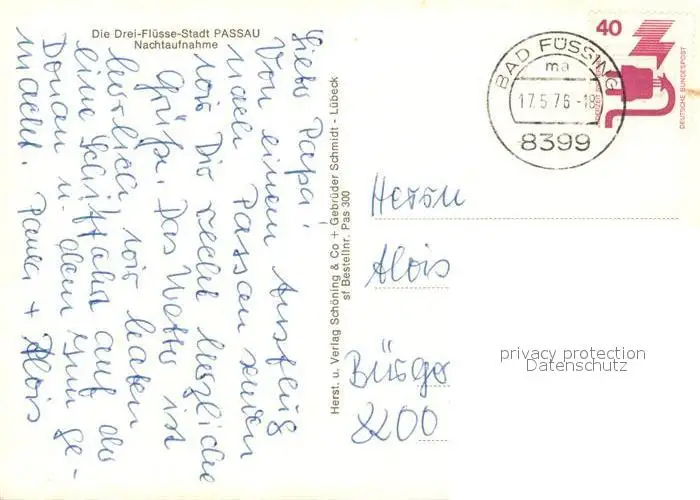 Die Drei-Flüsse-Stadt PASSAU
Nachtaufnahme
Lieber Papa!
Von einem Ausflug
nach Passau senden
wir Dir recht herzliche
Grüße. Das Wetter ist
herrlich, wir haben
eine Schiffahrt auf der
Donau u. dem Inn ge-
macht.
+ Alois
Herst. u. Verlag Schöning & Co + Gebrüder Schmidt - Lübeck
sf Bestellnr. Pas 300
BAD FÜSSING
ma
17.5.76-18
8399
40
DEUTSCHE BUNDESPOST
Herrn
Alois
Bürger
8200
privacy protection
Datenschutz